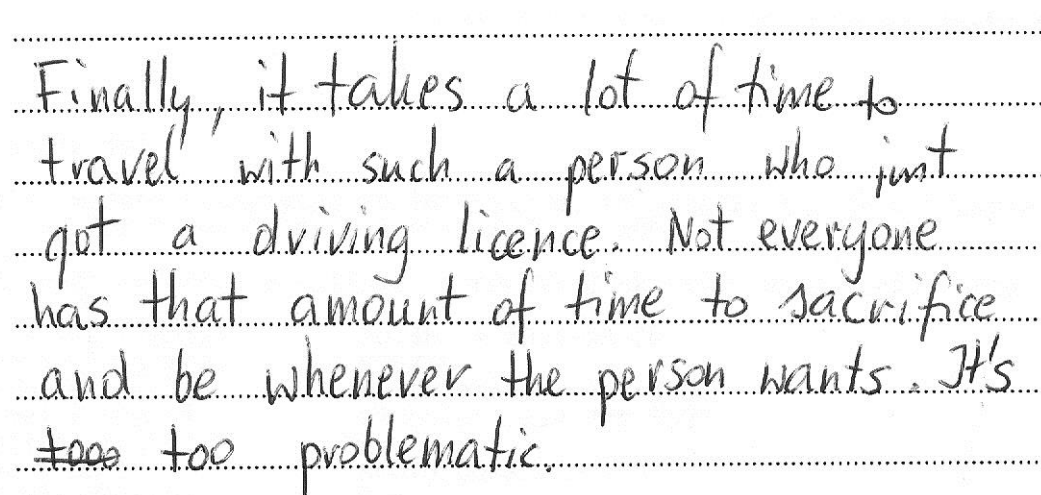 Finally, it takes a lot of time to
travel with such a person who just
got a driving licence. Not everyone
has that amount of time to sacrifice
and be whenever the person wants. It's
too problematic.